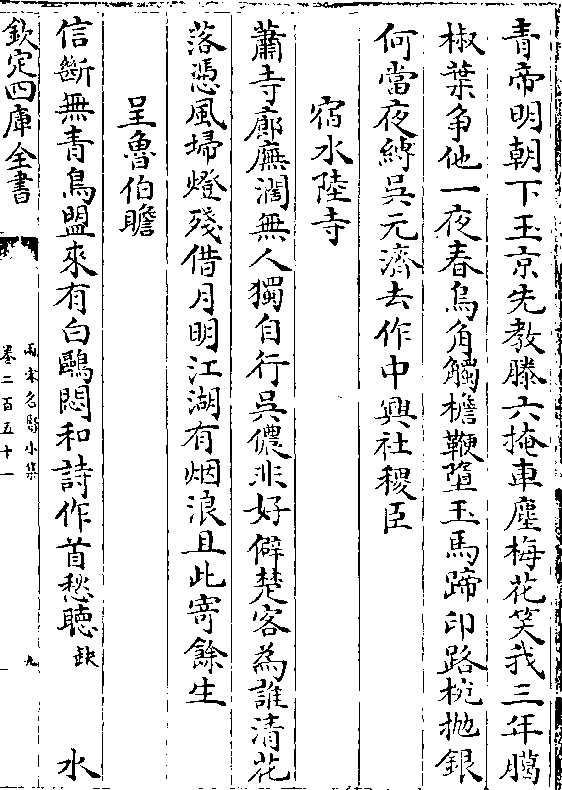 青帝明朝下玉京先教滕六掩車塵梅花笑我三年臈
椒葉争他一夜春烏角觸檐鞭墮玉馬蹄印路椀抛銀
何當夜縛吳元濟去作中興社稷臣
宿水陸寺
蕭寺廊廡濶無人獨自行吳儂非好僻楚客為誰清花
落憑風埽燈殘借月明江湖有烟浪且此寄餘生
呈魯伯瞻
信斷無青鳥盟來有白鷗悶和詩作首愁聽缺 水
欽定四庫全書
兩宋名賢小集
卷二百五十一
九